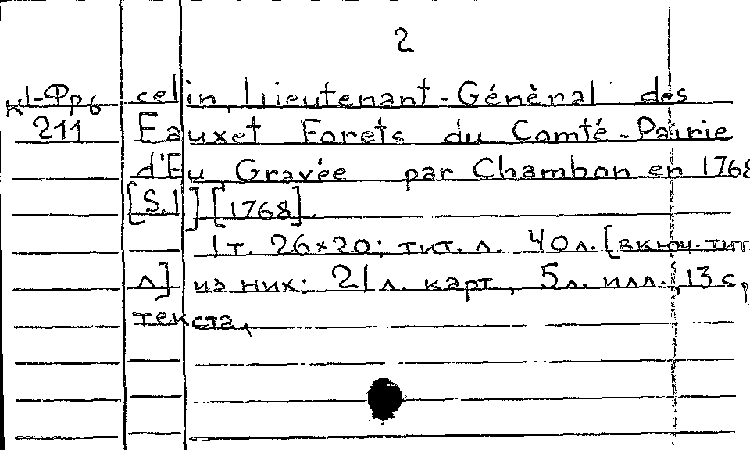 2
К1-Фрб celin, Lieutenant-Général des
211 Eauxet Forets du Comté-Pairie
d'Eu Gravée par Chambon en 1768
[S.l] [1768].
1 т. 26×20; тит. л. 40л. [включ. тит.
л] из них: 21 л. карт, 5л. илл., 13 с,
текста,